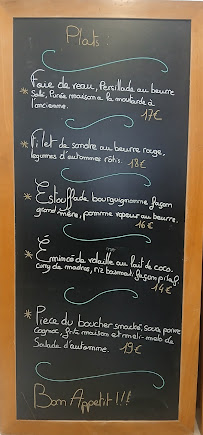 Plats :
Foie de veau, Persillade au beurre
Salé, Purée maison a la moutarde à
l'ancienne. 17€
Filet de sandre au beurre rouge,
légumes d'automnes rôtis. 18€
Estouffade bourguignonne façon
grand mère, pomme vapeur au beurre.
16€
Émincé de volaille au lait de coco.
curry de madras, riz basmati façon pilaf
14€
Piece du boucher snackée, sauce poivre
Cognac, frite maison et meli-melo de
Salade d'automne. 19€
Bon Appetit !!!